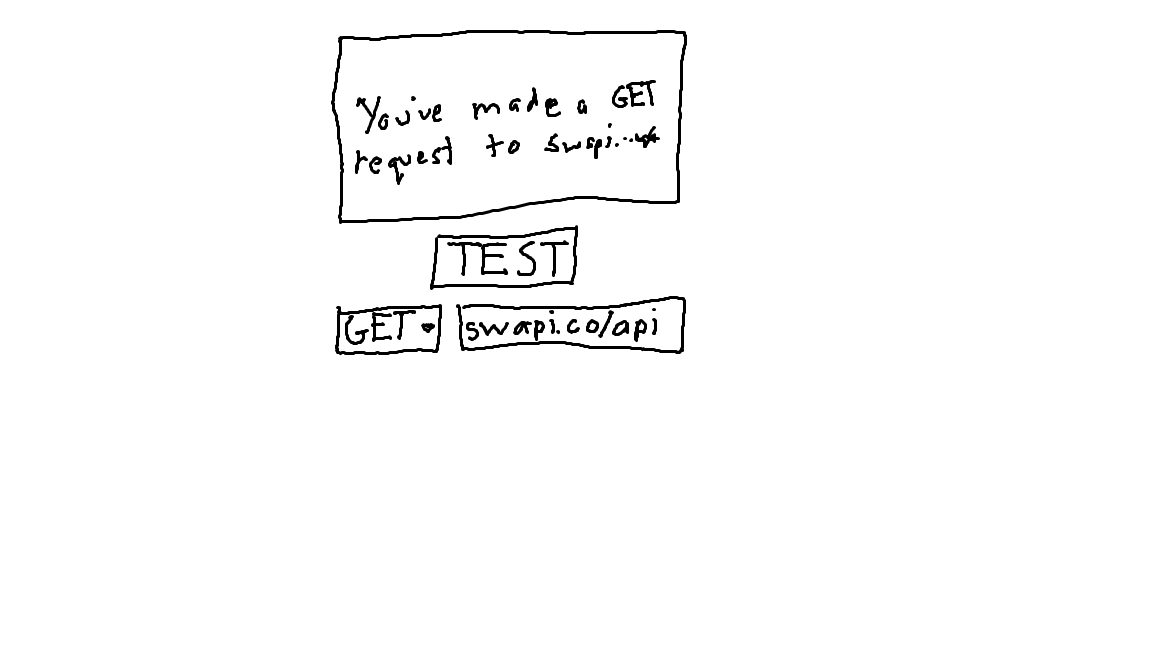 "You've made a GET
request to swapi..."
TEST
GET
swapi.co/api